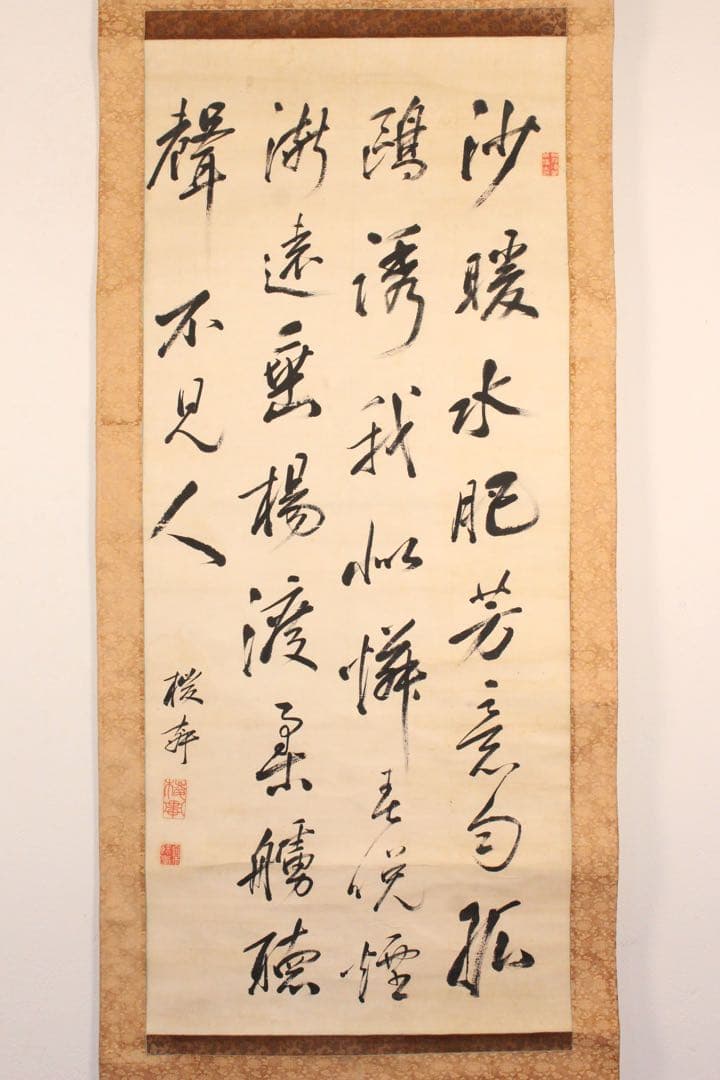 沙暖水肥芳意匀孤
鷗誘我似憐春晚煙
漸遠垂楊渡柔艣聽
聲不見人